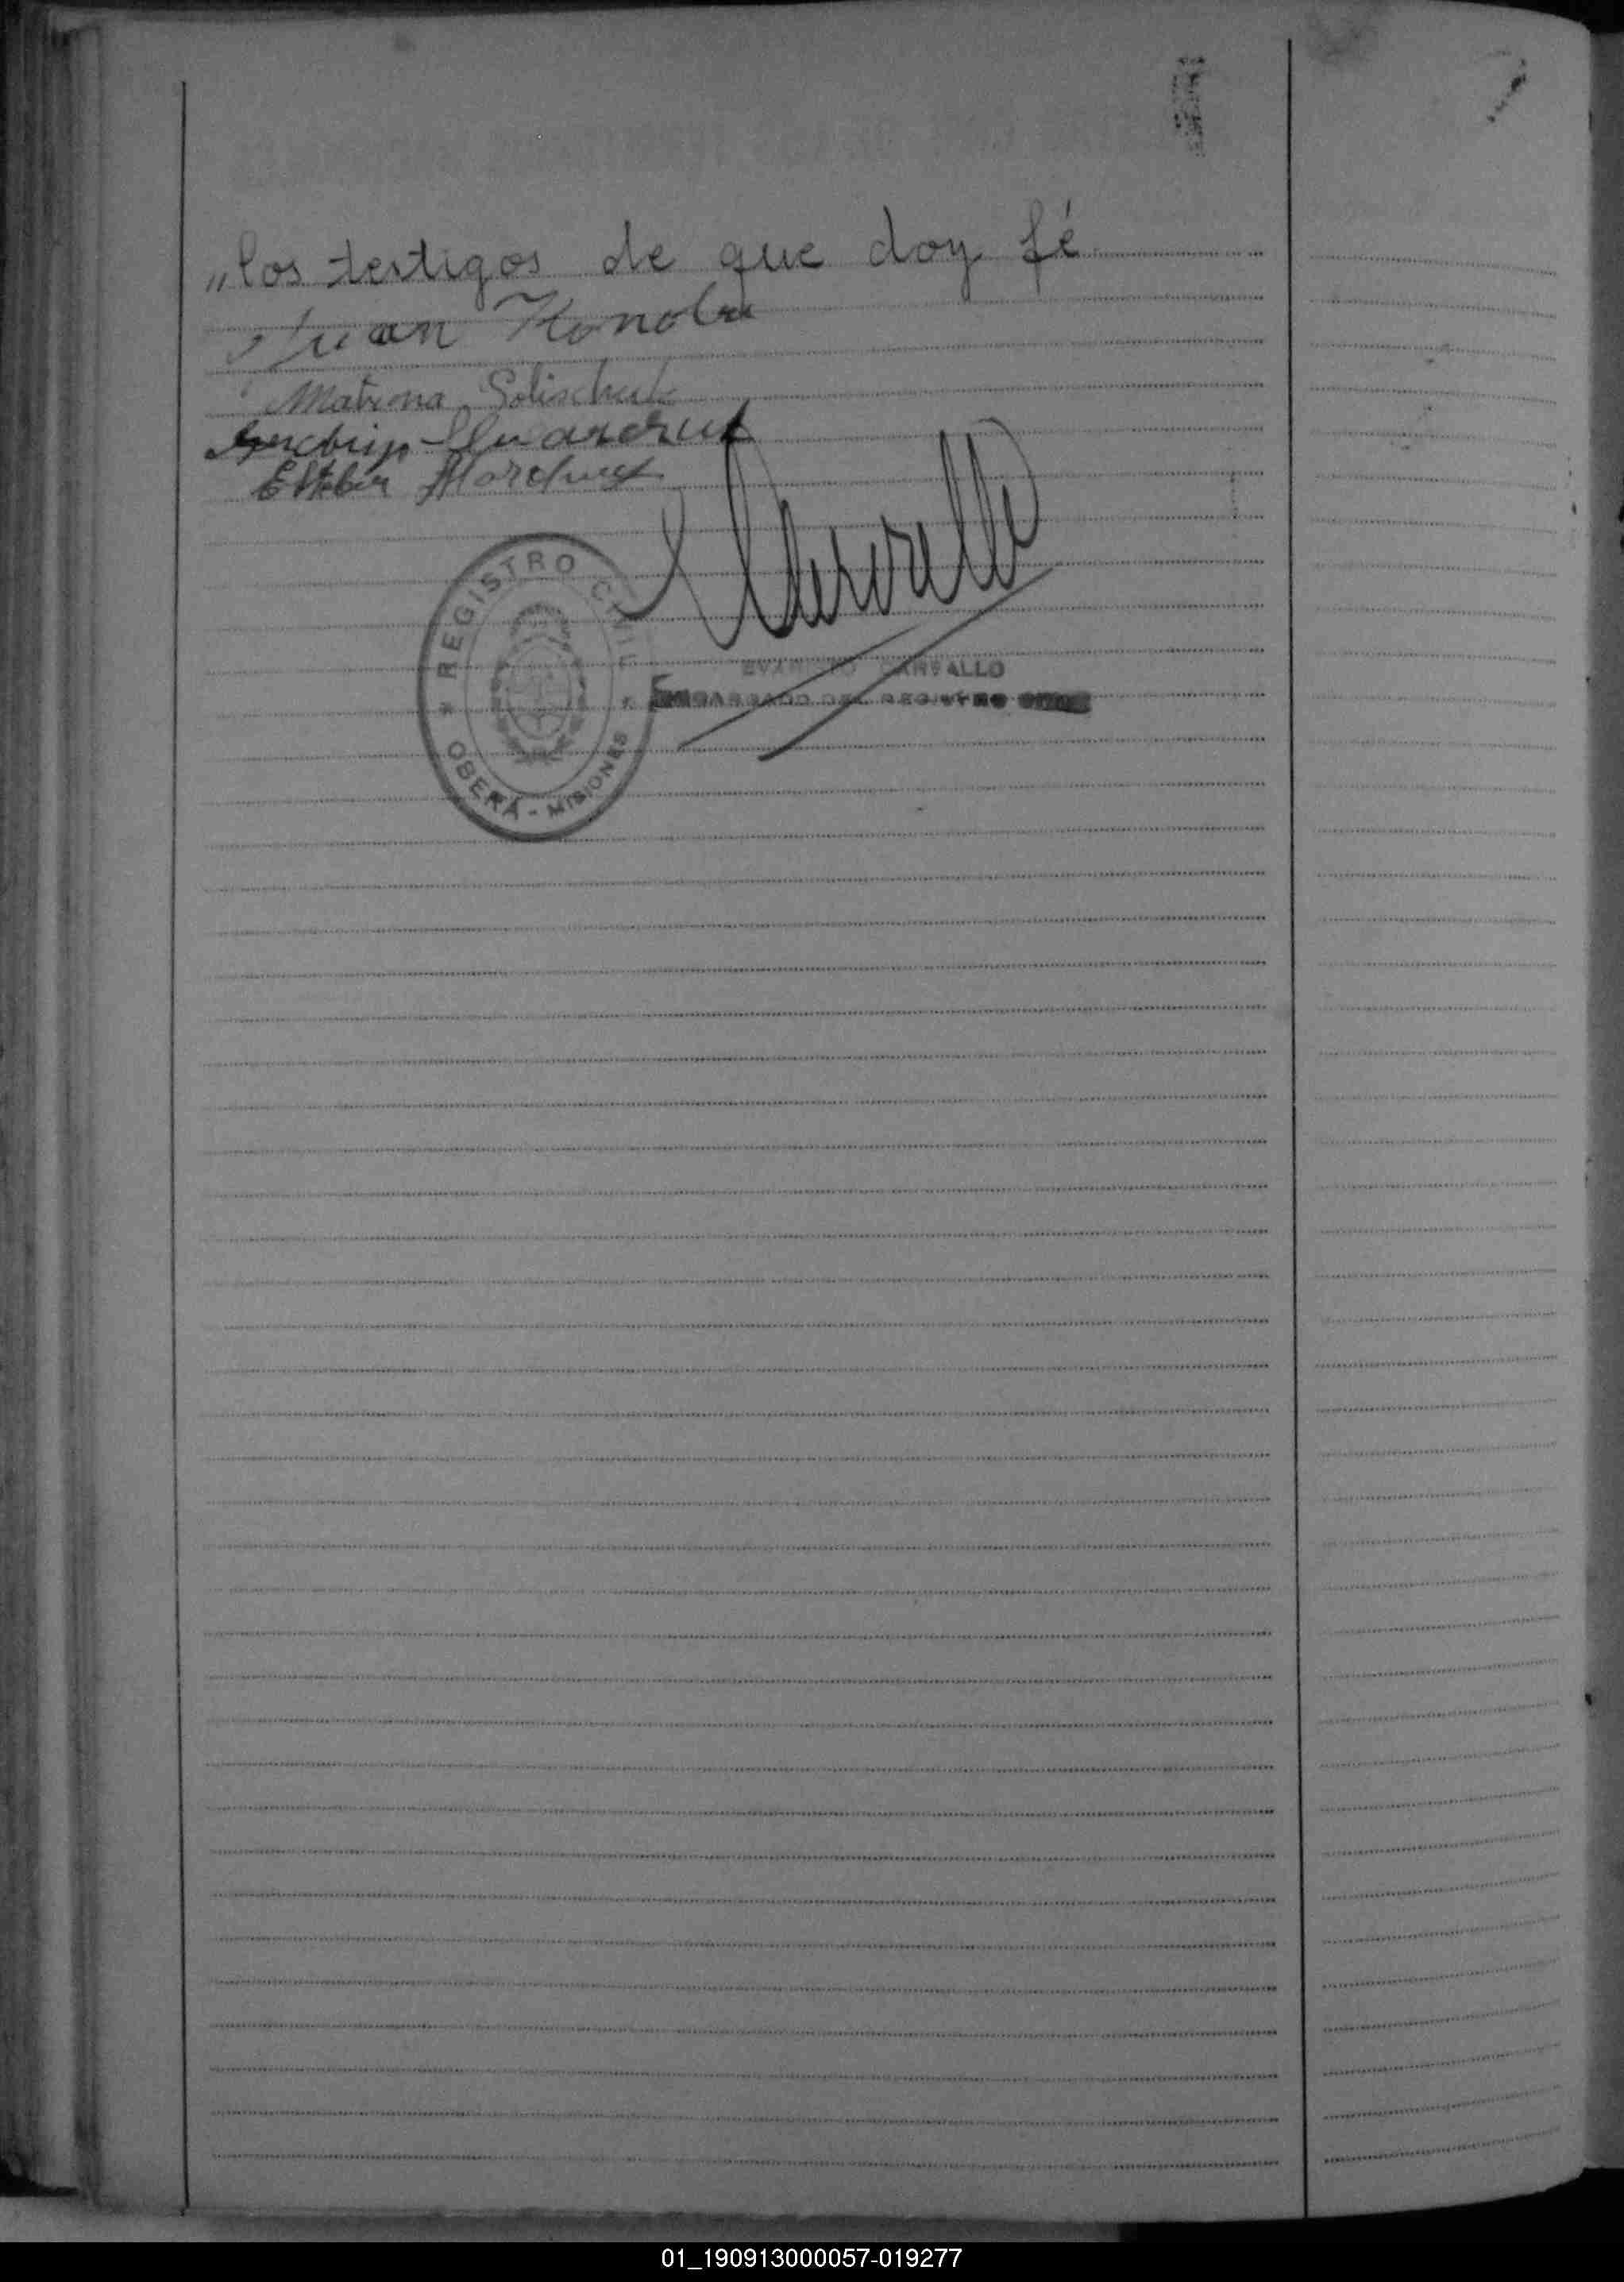 „los testigos de que doy fé
Juan Konolu
Matrona Solischuk
Esteban Marchuk
REGISTRO CIVIL
OBERÁ - MISIONES
EVARISTO CARVALLO
ENCARGADO DEL REGISTRO CIVIL
01_190913000057-019277